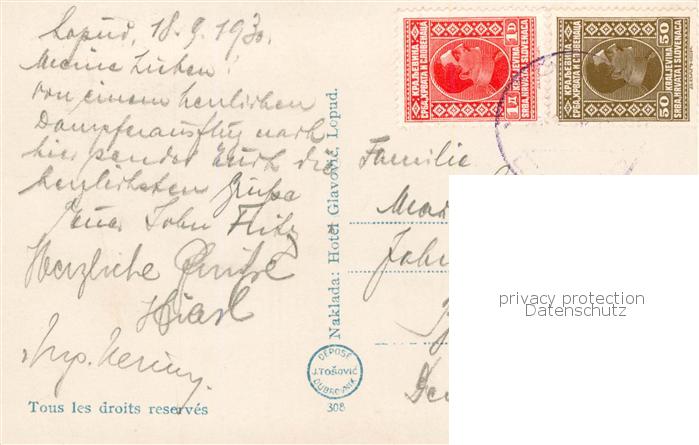 Lopud, 18.9.1930.
Meine Lieben!
Von einem herrlichen
Dampferausflug nach
hier sendet Euch die
herzlichsten Grüße
Euer Sohn Fritz
Herzliche Grüße
Familie
КРАЉЕВИНА
СРБА, ХРВАТА И СЛОВЕНАЦА
1 Д
1 D
KRALJEVINA
SRBA, HRVATA I SLOVENACA
КРАЉЕВИНА
СРБА, ХРВАТА И СЛОВЕНАЦА
50
50
KRALJEVINA
SRBA, HRVATA I SLOVENACA
Naklada: Hotel Glavović, Lopud.
DEPOSÉ
J. TOŠOVIĆ
DUBROVNIK
308
Tous les droits reservés
privacy protection
Datenschutz